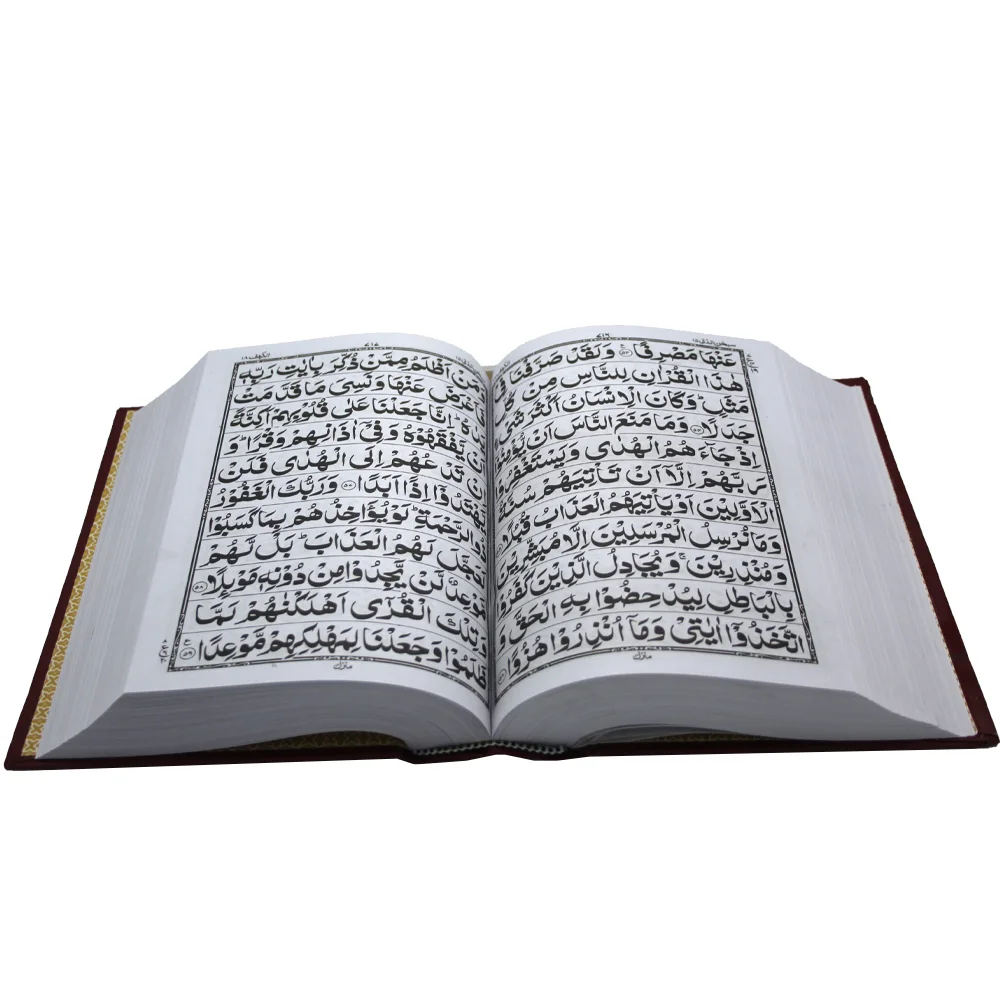 ٧١٦
سبحٰن الذی ١٥
عَنْهَا مَصْرِفًا ﴿٥٣﴾ وَلَقَدْ صَرَّفْنَا فِیْ
هٰذَا الْقُرْاٰنِ لِلنَّاسِ مِنْ كُلِّ
مَثَلٍ ؕ وَكَانَ الْاِنْسَانُ اَكْثَرَ شَیْءٍ
جَدَلًا ﴿٥٤﴾ وَمَا مَنَعَ النَّاسَ اَنْ یُّؤْمِنُوْۤا
اِذْ جَآءَهُمُ الْهُدٰی وَیَسْتَغْفِرُوْا
رَبَّهُمْ اِلَّاۤ اَنْ تَاْتِیَهُمْ سُنَّةُ
الْاَوَّلِیْنَ اَوْ یَاْتِیَهُمُ الْعَذَابُ قُبُلًا
وَمَا نُرْسِلُ الْمُرْسَلِیْنَ اِلَّا مُبَشِّرِیْنَ
وَمُنْذِرِیْنَ ۚ وَیُجَادِلُ الَّذِیْنَ كَفَرُوْا
بِالْبَاطِلِ لِیُدْحِضُوْا بِهِ الْحَقَّ وَ
اتَّخَذُوْۤا اٰیٰتِیْ وَمَاۤ اُنْذِرُوْا هُزُوًا
منزل
٧١٧
الكهف ١٨
وَمَنْ اَظْلَمُ مِمَّنْ ذُكِّرَ بِاٰیٰتِ رَبِّهٖ
فَاَعْرَضَ عَنْهَا وَنَسِیَ مَا قَدَّمَتْ
یَدٰهُ ؕ اِنَّا جَعَلْنَا عَلٰی قُلُوْبِهِمْ اَكِنَّةً
اَنْ یَّفْقَهُوْهُ وَفِیْۤ اٰذَانِهِمْ وَقْرًا ؕ وَ
اِنْ تَدْعُهُمْ اِلَی الْهُدٰی فَلَنْ
یَّهْتَدُوْۤا اِذًا اَبَدًا ﴿٥٧﴾ وَرَبُّكَ الْغَفُوْرُ
ذُو الرَّحْمَةِ ؕ لَوْ یُؤَاخِذُهُمْ بِمَا كَسَبُوْا
لَعَجَّلَ لَهُمُ الْعَذَابَ ؕ بَلْ لَّهُمْ
مَّوْعِدٌ لَّنْ یَّجِدُوْا مِنْ دُوْنِهٖ مَوْىِٕلًا ﴿٥٨﴾
وَتِلْكَ الْقُرٰۤی اَهْلَكْنٰهُمْ لَمَّا
ظَلَمُوْا وَجَعَلْنَا لِمَهْلِكِهِمْ مَّوْعِدًا ﴿٥٩﴾
منزل